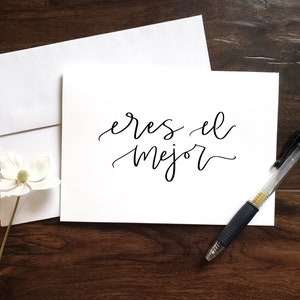 eres el
mejor